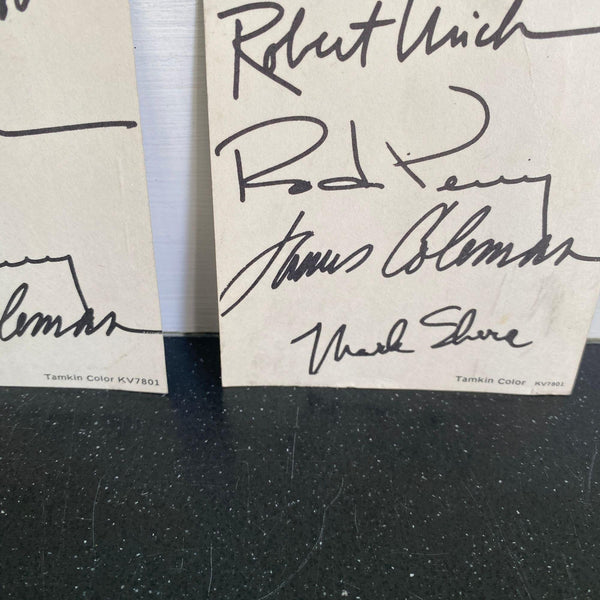 Robert Urich
Rod Perry
James Coleman
Mark Shera
Tamkin Color KV7801
Coleman
Tamkin Color KV7801